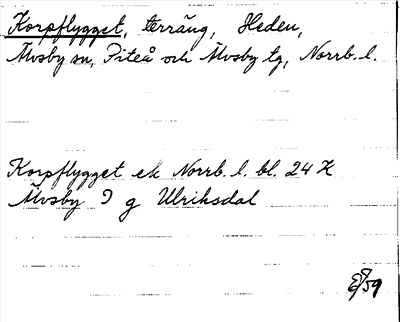 Korpflygget, terräng, Heden,
Älvsby sn, Piteå och Älvsby tg, Norrb. l.
Korpflygget ek Norrb. l. bl. 24 K
Älvsby 9 g Ulriksdal